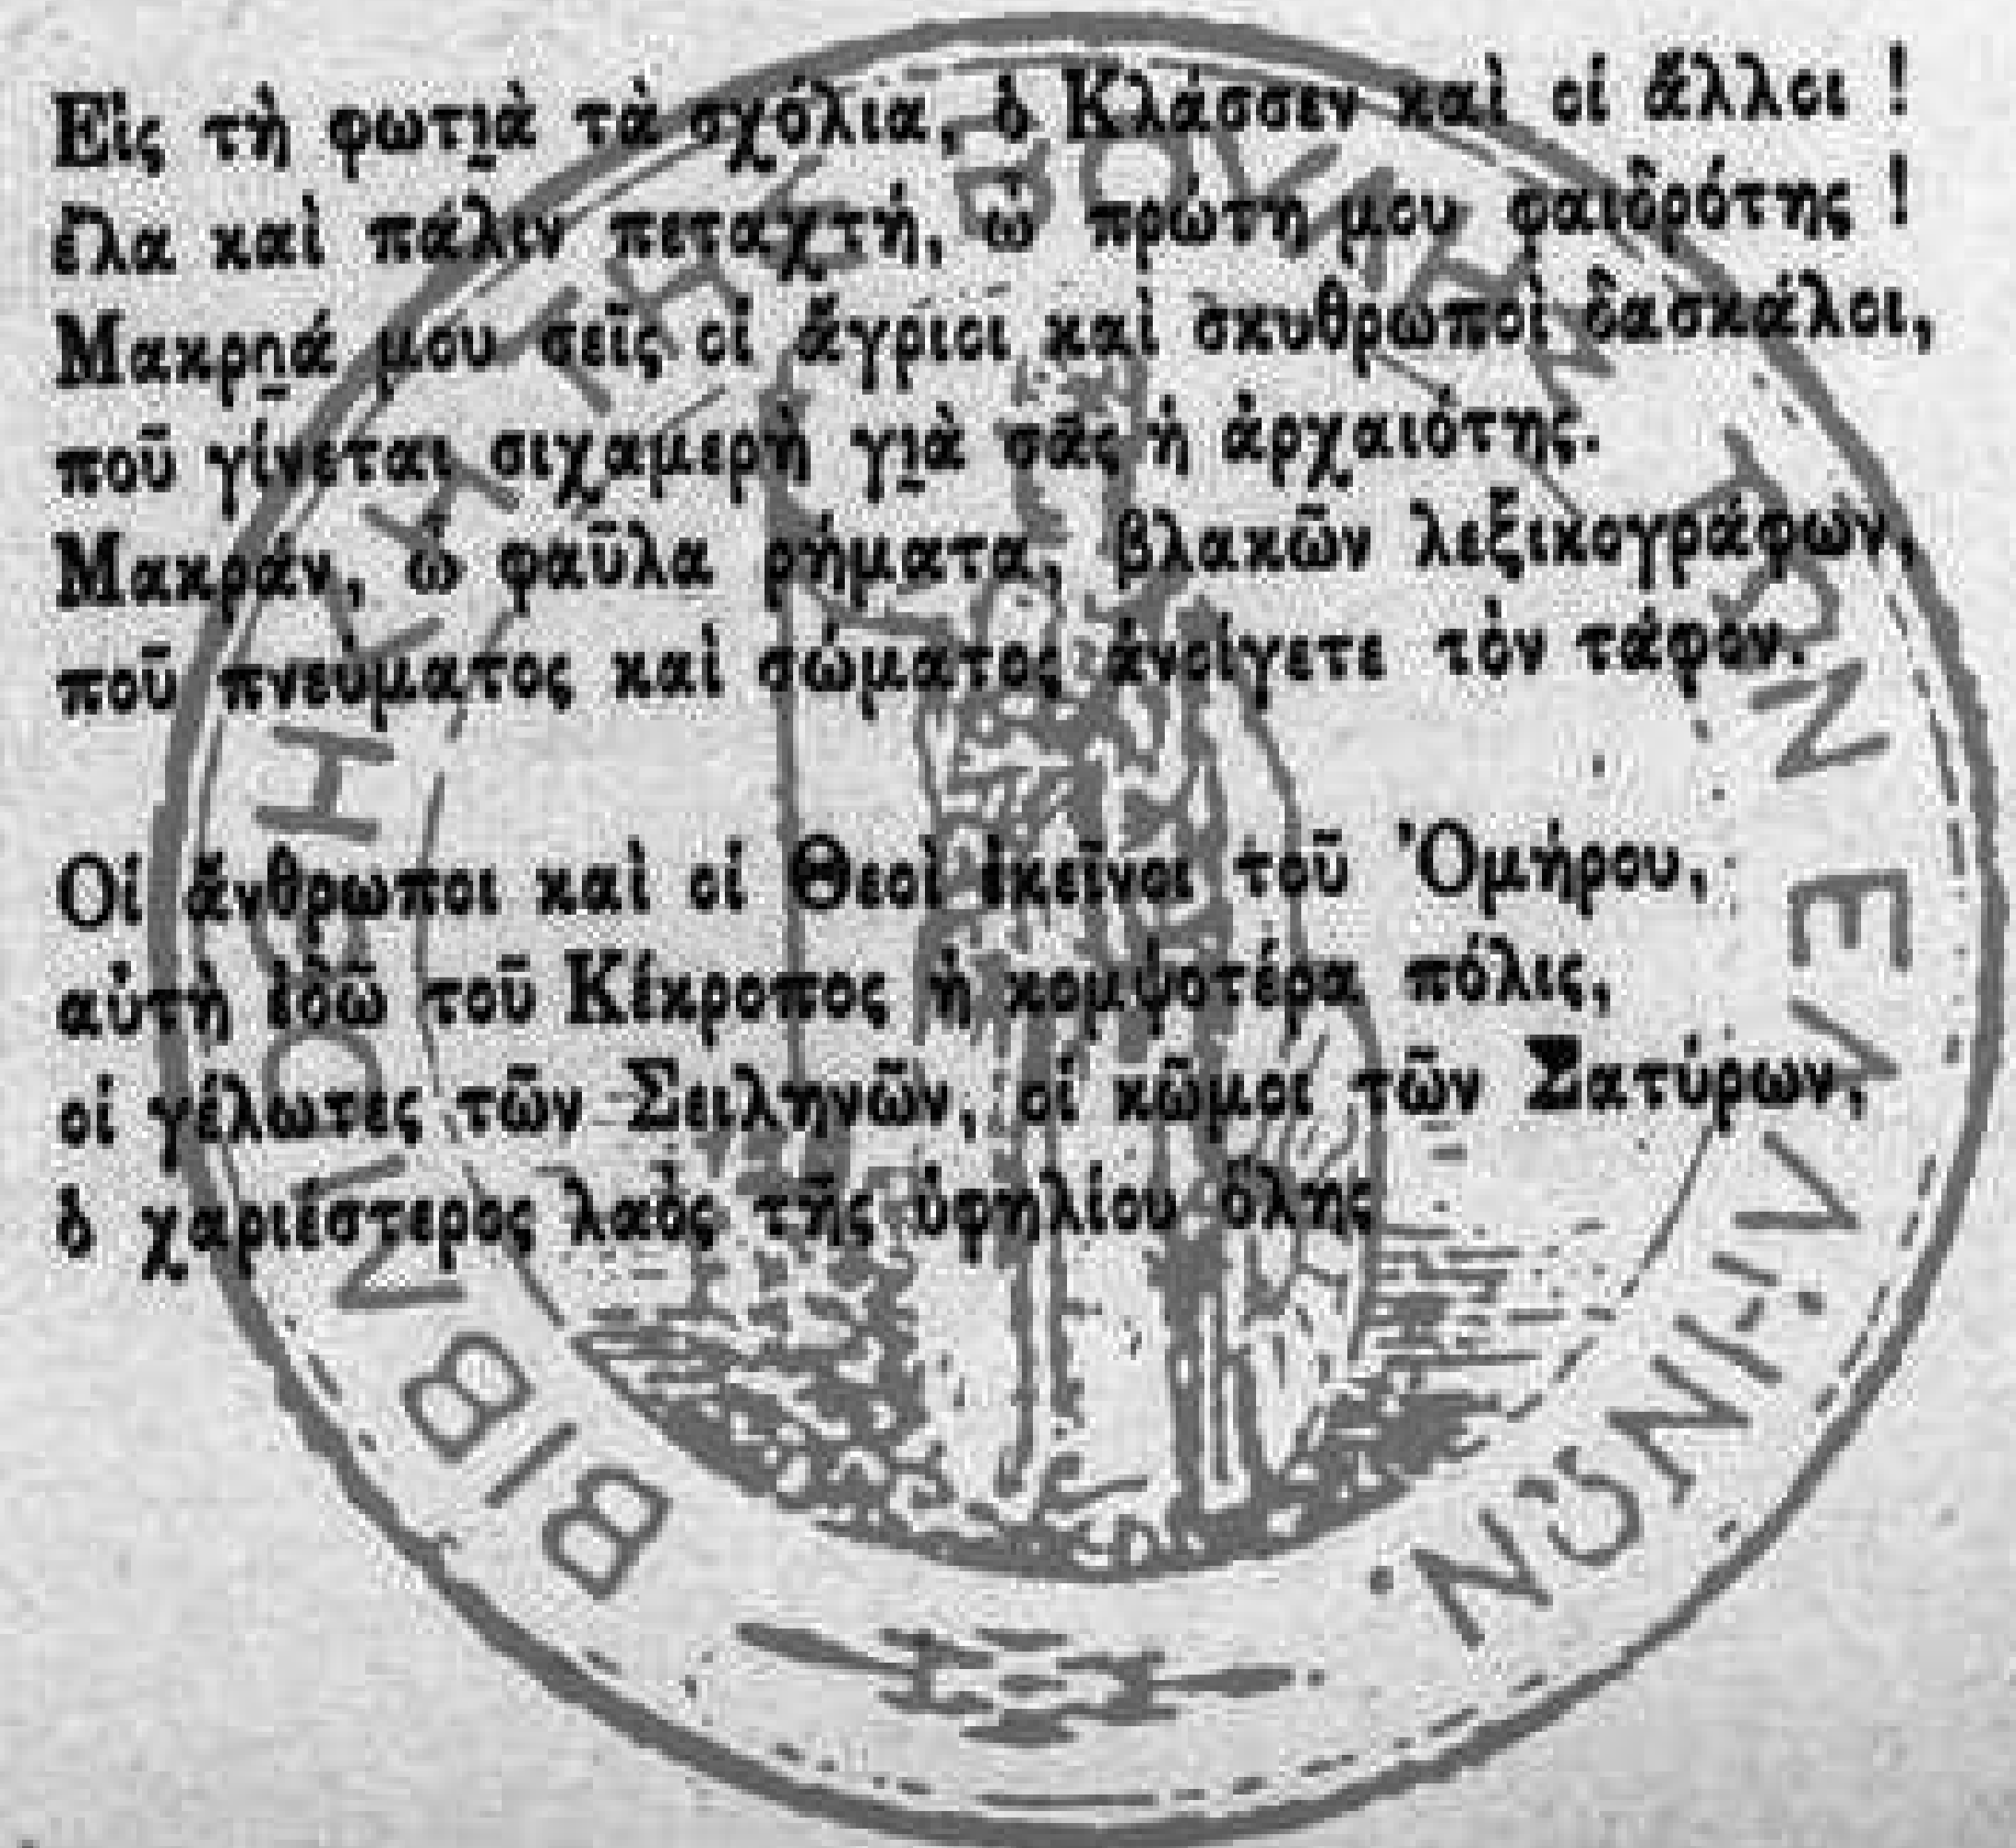 Εἰς τὴ φωτι̱ὰ τὰ σχόλια, ὁ Κλάσσεν καὶ οἱ ἄλλοι !
ἔλα καὶ πάλιν πεταχτή, ὦ πρώτη μου φαιδρότης !
Μακρη̱ά μου σεῖς οἱ ἄγριοι καὶ σκυθρωποὶ δασκάλοι,
ποῦ γίνεται σιχαμερὴ γι̱ὰ σᾶς ἡ ἀρχαιότης.
Μακράν, ὦ φαῦλα ρήματα, βλακῶν λεξικογράφων,
ποῦ πνεύματος καὶ σώματος ἀνοίγετε τὸν τάφον.
Οἱ ἄνθρωποι καὶ οἱ Θεοὶ ἐκεῖνοι τοῦ Ὁμήρου,
αὐτὴ ἐδῶ τοῦ Κέκροπος ἡ κομψοτέρα πόλις,
οἱ γέλωτες τῶν Σειληνῶν, οἱ κῶμοι τῶν Σατύρων,
ὁ χαριέστερος λαὸς τῆς ὑφηλίου ὅλης
ΒΙΒΛΙΟΘΗΚΗ ΤΗΣ ΒΟΥΛΗΣ ΤΩΝ ΕΛΛΗΝΩΝ